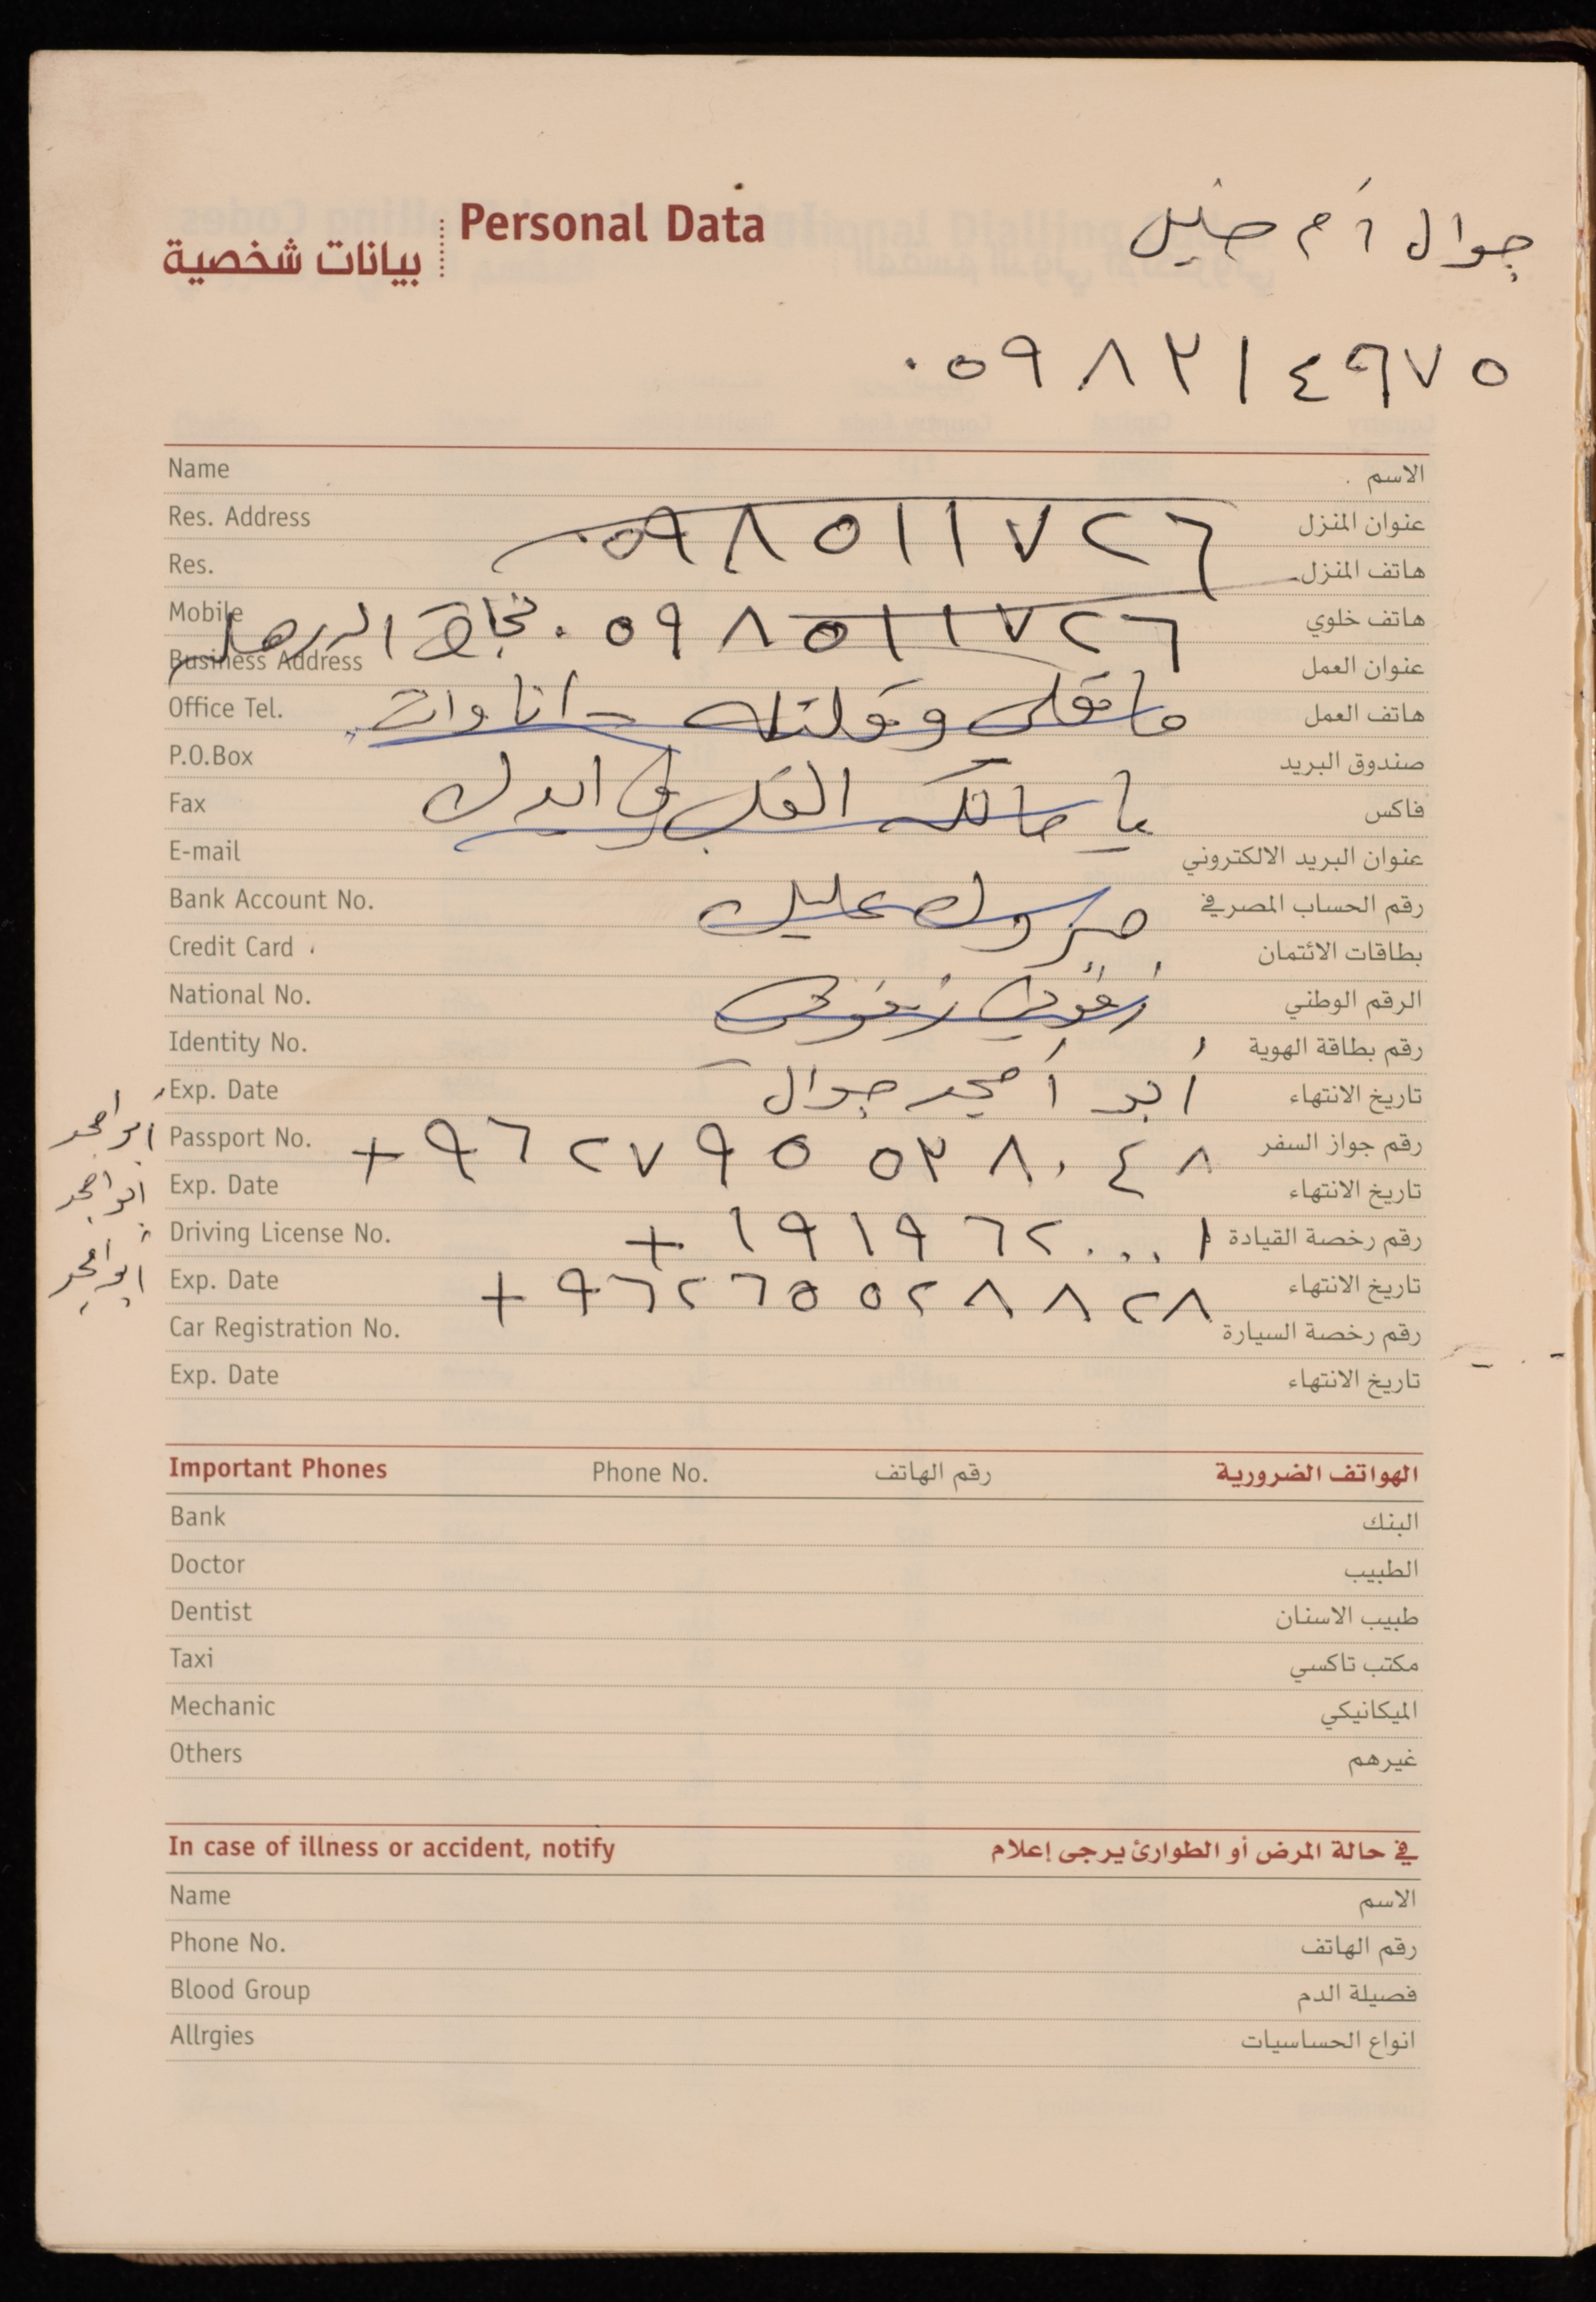 جوال أم خليل
Personal Data
بيانات شخصية
٠٥٩٨٢١٤٩٧٥
Name الاسم
Res. Address عنوان المنزل
٠٥٩٨٥١١٧٢٦
Res. هاتف المنزل
Mobile هاتف خلوي
٠٥٩٨٥١١٧٢٦ نجاة
Business Address عنوان العمل
Office Tel. هاتف العمل
ماتقلي وقولتلك - انا وانت
P.O.Box صندوق البريد
Fax فاكس
يا مالكه القلب في ايدك
E-mail عنوان البريد الالكتروني
Bank Account No. رقم الحساب المصرفي
مبروك عليك
Credit Card بطاقات الائتمان
National No. الرقم الوطني
زفوني زفوني
Identity No. رقم بطاقة الهوية
Exp. Date تاريخ الانتهاء
أبو أمجد جوال
أبو امجد
Passport No. رقم جواز السفر
+٩٦٢٧٩٥٥٣٨٠٤٨
ابو امجد
Exp. Date تاريخ الانتهاء
Driving License No. رقم رخصة القيادة
+١٩١٩٦٢٠٠٠١
ابو امجد
Exp. Date تاريخ الانتهاء
+٩٦٢٦٥٥٢٨٨٢٨
Car Registration No. رقم رخصة السيارة
Exp. Date تاريخ الانتهاء
Important Phones Phone No. رقم الهاتف الهواتف الضرورية
Bank البنك
Doctor الطبيب
Dentist طبيب الاسنان
Taxi مكتب تاكسي
Mechanic الميكانيكي
Others غيرهم
In case of illness or accident, notify في حالة المرض أو الطوارئ يرجى إعلام
Name الاسم
Phone No. رقم الهاتف
Blood Group فصيلة الدم
Allrgies انواع الحساسيات